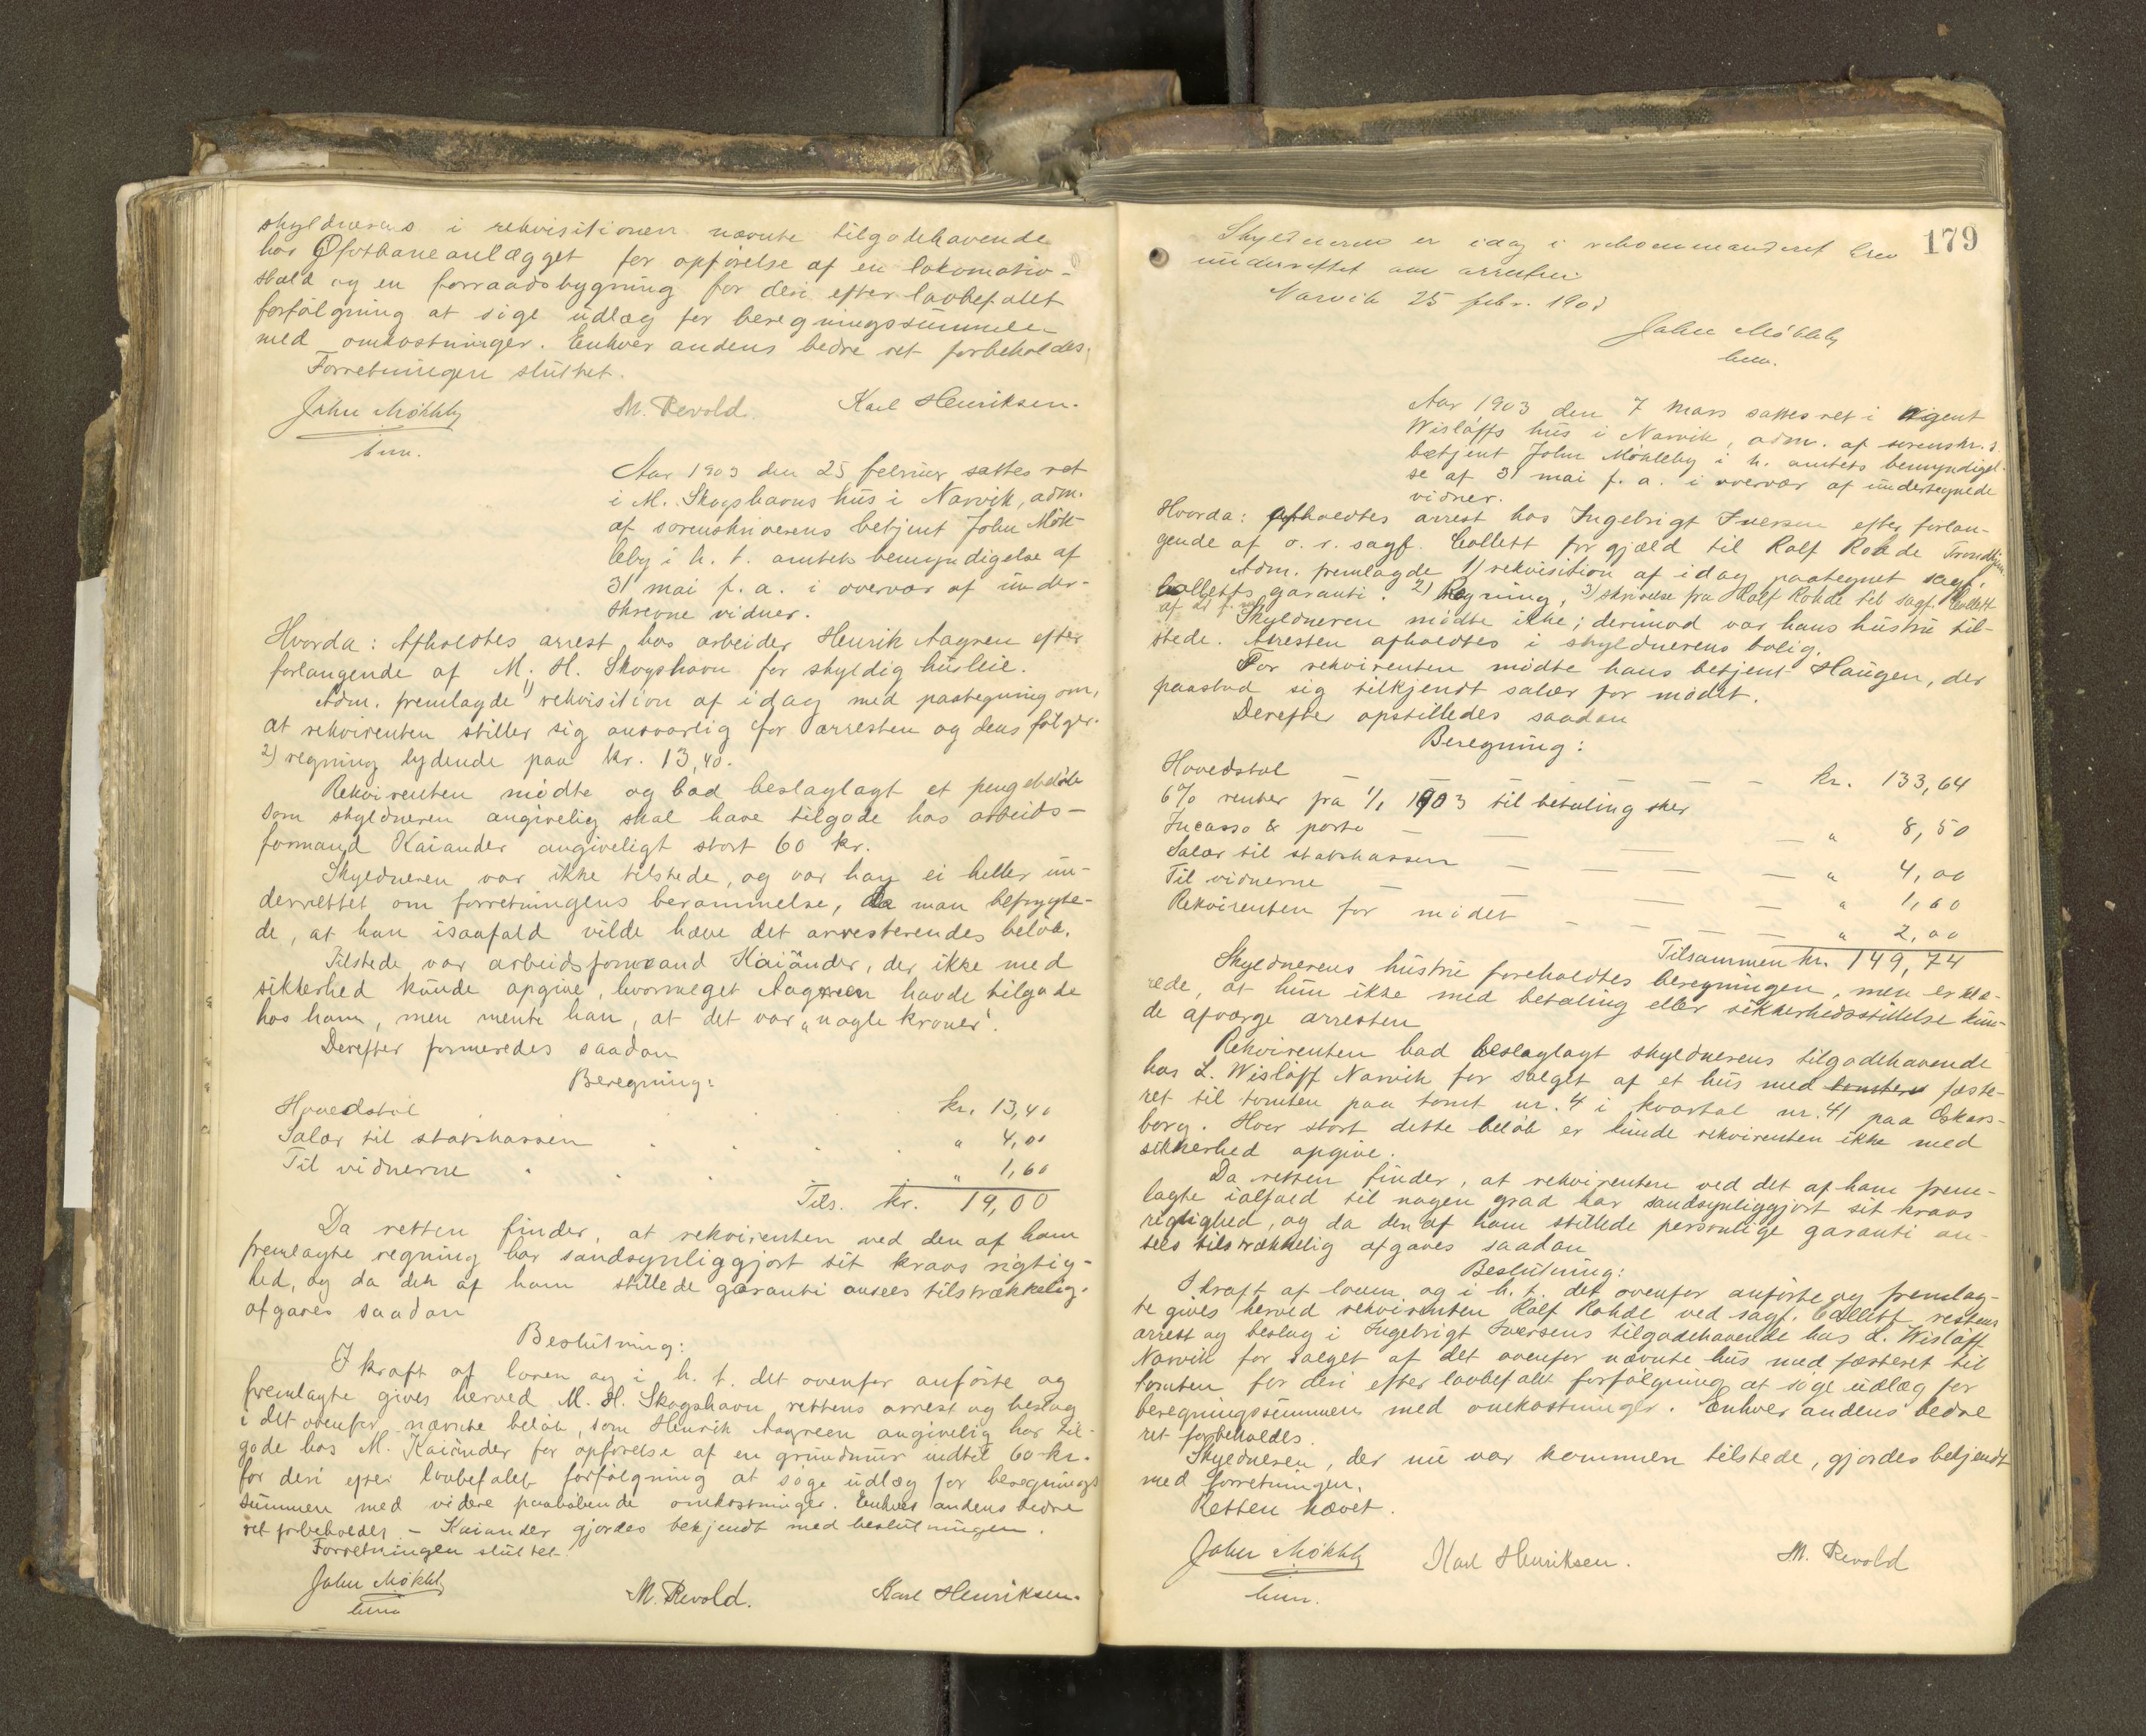 skyldnerens i rekvisitionen nævnte tilgodehavende
hos Ofotbaneanlægget for opførelse af en lokomotiv-
stald og en forraadsbygning for deri efter lovbefalet
forfølgning at søge udlæg for beregningssummen
med omkostninger. Enhver andens bedre ret forbeholdes.
Forretningen sluttet.
John Møkleby M. Revold. Karl Henriksen.
bem.
Aar 1903 den 25 februar sattes ret
i M. Skogshavns hus i Narvik, adm.
af sorenskriverens betjent John Møk-
leby i h. t. amtets bemyndigelse af
31 mai f. a. i overvær af under-
skrevne vidner.
Hvorda: Afholdtes arrest hos arbeider Henrik Aagren efter
forlangende af M. H. Skogshavn for skyldig husleie.
Adm. fremlagde 1) rekvisition af idag med paategning om,
at rekvirenten stiller sig ansvarlig for arresten og dens følger.
2) regning lydende paa kr. 13,40.
Rekvirenten mødte og bad beslaglagt et pengebeløb
som skyldneren angivelig skal have tilgode hos arbeids-
formand Kaiander angiveligt stort 60 kr.
Skyldneren var ikke tilstede, og var han ei heller un-
derrettet om forretningens berammelse, da man befrygte-
de, at han isaafald vilde hæve det arresterendes beløb.
Tilstede var arbeidsformand Kaiänder, der ikke med
sikkerhed kunde opgive, hvormeget Aagreen havde tilgode
hos ham, men mente han, at det var „nogle kroner".
Derefter formeredes saadan
Beregning:
Hovedstol kr. 13,40
Salær til statskassen " 4,00
Til vidnerne " 1,60
Tils. kr. 19,00
Da retten finder, at rekvirenten ved den af ham
fremlagte regning har sandsynliggjort sit kravs rigtig-
hed, og da den af ham stillede garanti ansees tilstrækkelig,
afgaves saadan
Beslutning:
I kraft af loven og i h. t. det ovenfor anførte og
fremlagte gives herved M. H. Skogshavn rettens arrest og beslag
i det ovenfor nævnte beløb, som Henrik Aagreen angivelig har til-
gode hos M. Kaiänder for opførelse af en grundmur indtil 60 kr.
for deri efter lovbefalet forfølgning at søge udlæg for beregnings
summen med videre paaløbende omkostninger. Enhver andens bedre
ret forbeholdes. – Kaiander gjordes bekjendt med beslutningen.
Forretningen sluttet.
John Møkleby M. Revold. Karl Henriksen.
bem.
179
Skyldneren er idag i rekommanderet brev
underrettet om arresten
Narvik 25 febr. 1903
John Møkleby
bem.
Aar 1903 den 7 mars sattes ret i agent
Wisløffs hus i Narvik, adm. af sorenskr.s
betjent John Møkleby i h. amtets bemyndigel-
se af 31 mai f. a. i overvær af undertegnede
vidner.
Hvorda: afholdtes arrest hos Ingebrigt Iversen efter forlan-
gende af o. r. sagf. Collett for gjæld til Rolf Rohde Trondhjem.
Adm. fremlagde 1) rekvisition af idag paategnet sagf.
Colletts garanti. 2) Regning, 3) skrivelse fra Rolf Rohde til sagf. Collett
Skyldneren mødte ikke; derimod var hans hustru til-
stede. Arresten afholdtes i skyldnerens bolig.
For rekvirenten mødte hans betjent Haugen, der
paastod sig tilkjendt salær for mødet.
Derefter opstilledes saadan
Beregning:
Hovedstol kr. 133,64
6% renter fra 1/1 1903 til betaling sker
Incasso & porto " 8,50
Salær til statskassen " 4,00
Til vidnerne " 1,60
Rekvirenten for mødet " 2,00
Tilsammen kr. 149,74
Skyldnerens hustru foreholdtes beregningen, men erklæ-
rede, at hun ikke med betaling eller sikkerhedsstillelse kun-
de afværge arresten
Rekvirenten bad beslaglagt skyldnerens tilgodehavende
hos L. Wisløff Narvik for salget af et hus med tomten fæste-
ret til tomten paa tomt nr. 4 i kvartal nr. 41 paa Oskars-
borg. Hvor stort dette beløb er kunde rekvirenten ikke med
sikkerhed opgive.
Da retten finder, at rekvirenten ved det af ham frem-
lagte ialfald til nogen grad har sandsynliggjort sit kravs
rigtighed, og da den af ham stillede personlige garanti an-
sees tilstrækkelig afgaves saadan
Beslutning:
I kraft af loven og i h. t. det ovenfor anførte og fremlag-
te gives herved rekvirenten Rolf Rohde ved sagf. Collett rettens
arrest og beslag i Ingebrigt Iversens tilgodehavende hos L. Wisløff
Narvik for salget af det ovenfor nævnte hus med fæsteret til
tomten for deri efter lovbefalet forfølgning at søge udlæg for
beregningssummen med omkostninger. Enhver andens bedre
ret forbeholdes.
Skyldneren, der nu var kommen tilstede, gjordes bekjendt
med forretningen.
Retten hævet.
John Møkleby Karl Henriksen. M. Revold
bem.